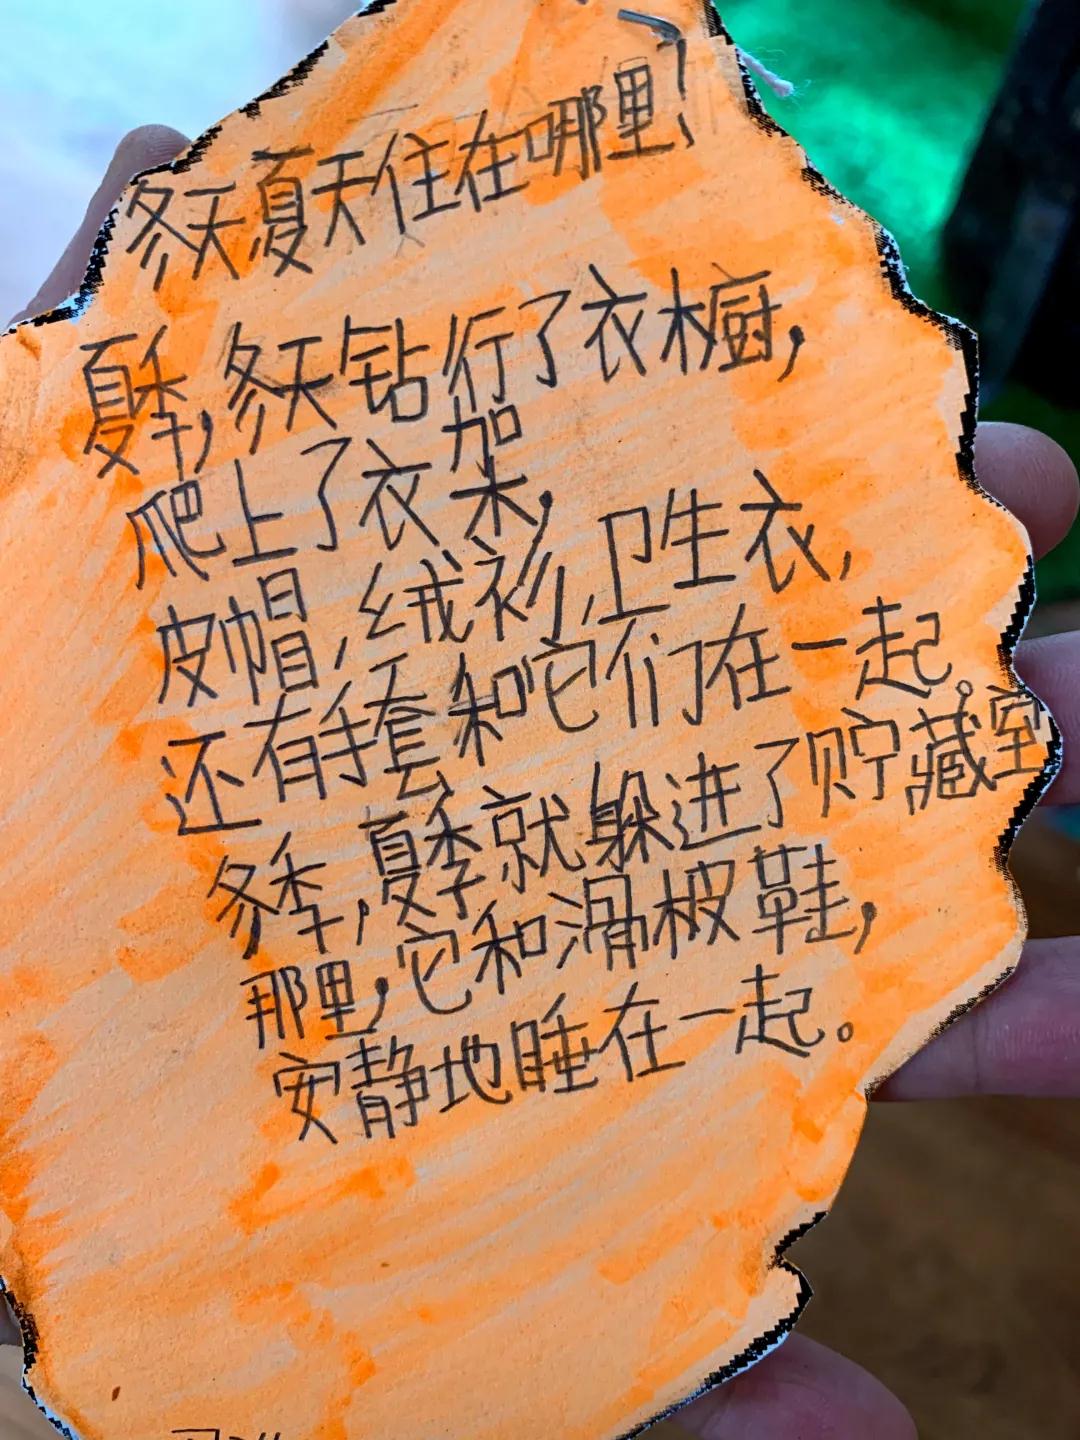 冬天夏天住在哪里?
夏季,冬天钻行了衣橱,
爬上了衣架,
皮帽,绒衫,卫生衣,
还有手套和它们在一起。
冬季,夏季就躲进了贮藏室
那里,它和滑板鞋,
安静地睡在一起。